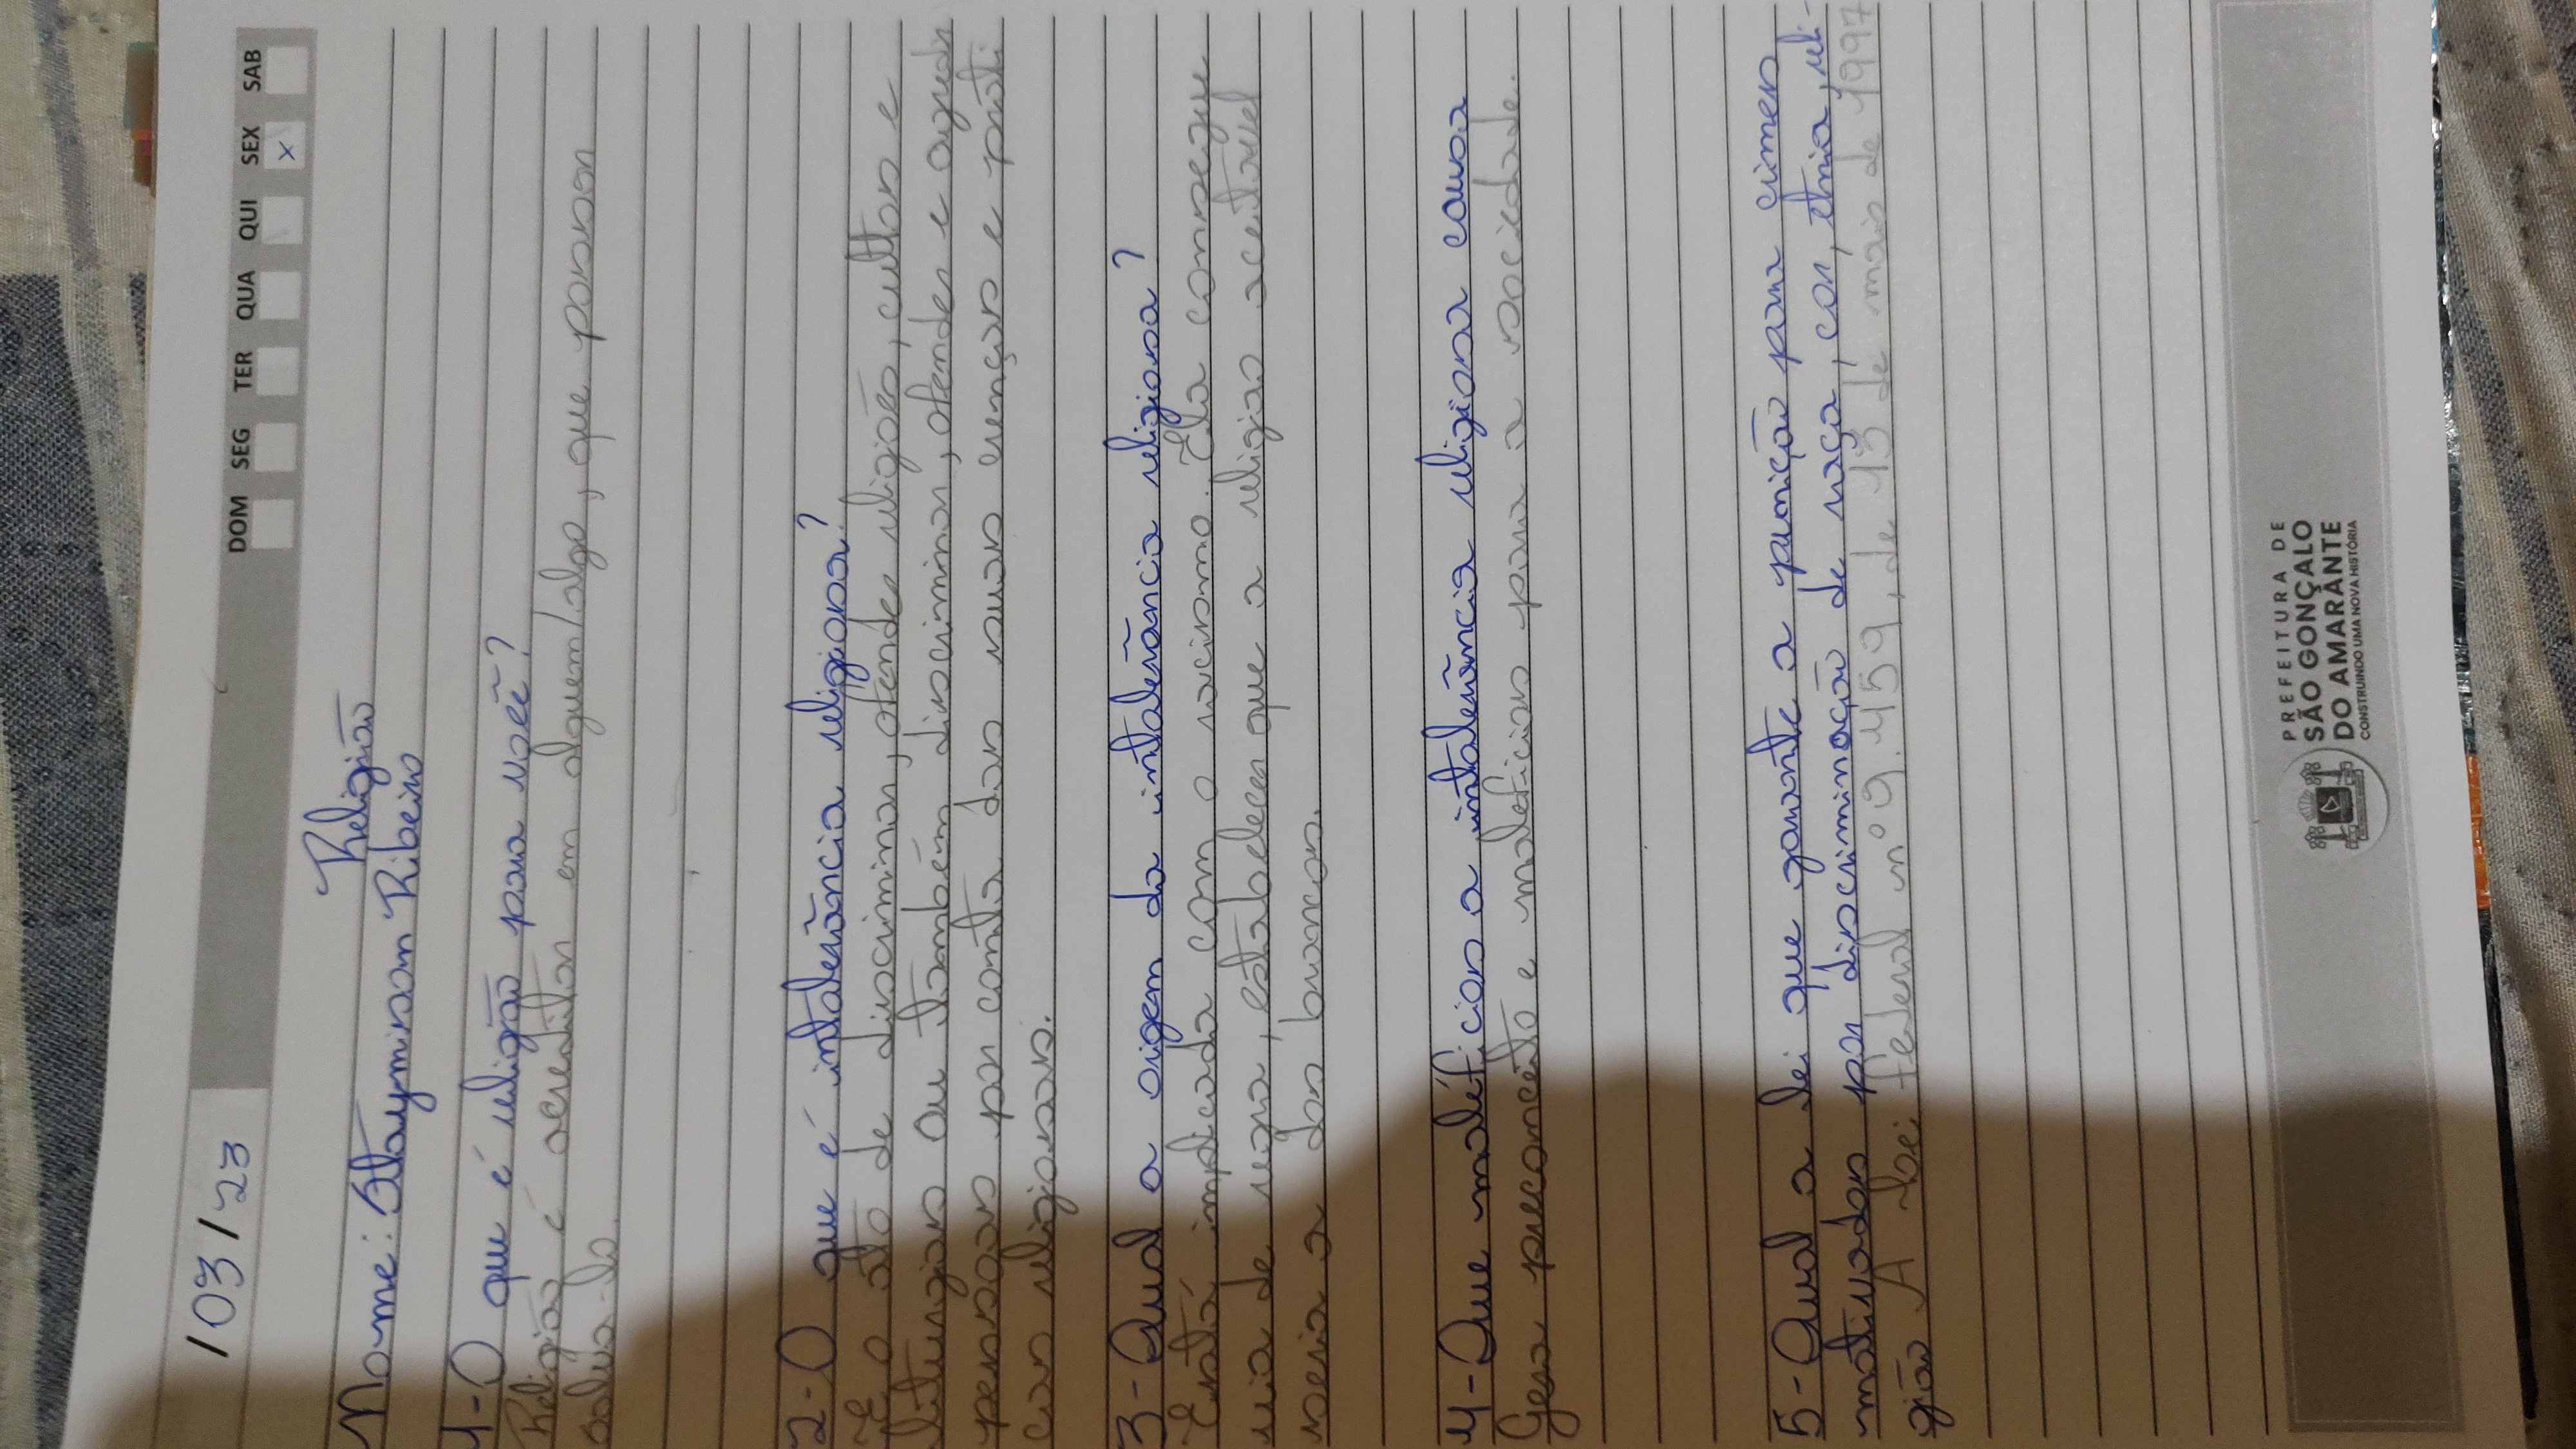 /03/23
DOM SEG TER QUA QUI SEX SAB
x
Religião
Nome: Staymison Ribeiro
1-O que é religião para você?
Religião é acreditar em alguem/algo, que possam
salva-lo.
2-O que é intolerância religiosa?
É o ato de discriminar, ofender religiões, cultos e
liturgias ou também discriminar, ofender e agredir
pessoas por conta das suas crenças e práti
cas religiosas.
3-Qual a origem da intolerância religiosa?
Está implicada com o racismo. Ela consegue
ria de regra, estabelecer que a religião aceitavel
seria a dos brancos.
4-Que maléficios a intolerância religiosa causa
Gera preconceito e maleficios para a sociedade.
5-Qual a lei que garante a punição para crimes
motivados por discriminação de raça, cor, etnia, reli-
gião A lei federal nº 9.459, de 13 de maio de 1997
PREFEITURA DE
SÃO GONÇALO
DO AMARANTE
CONSTRUINDO UMA NOVA HISTÓRIA